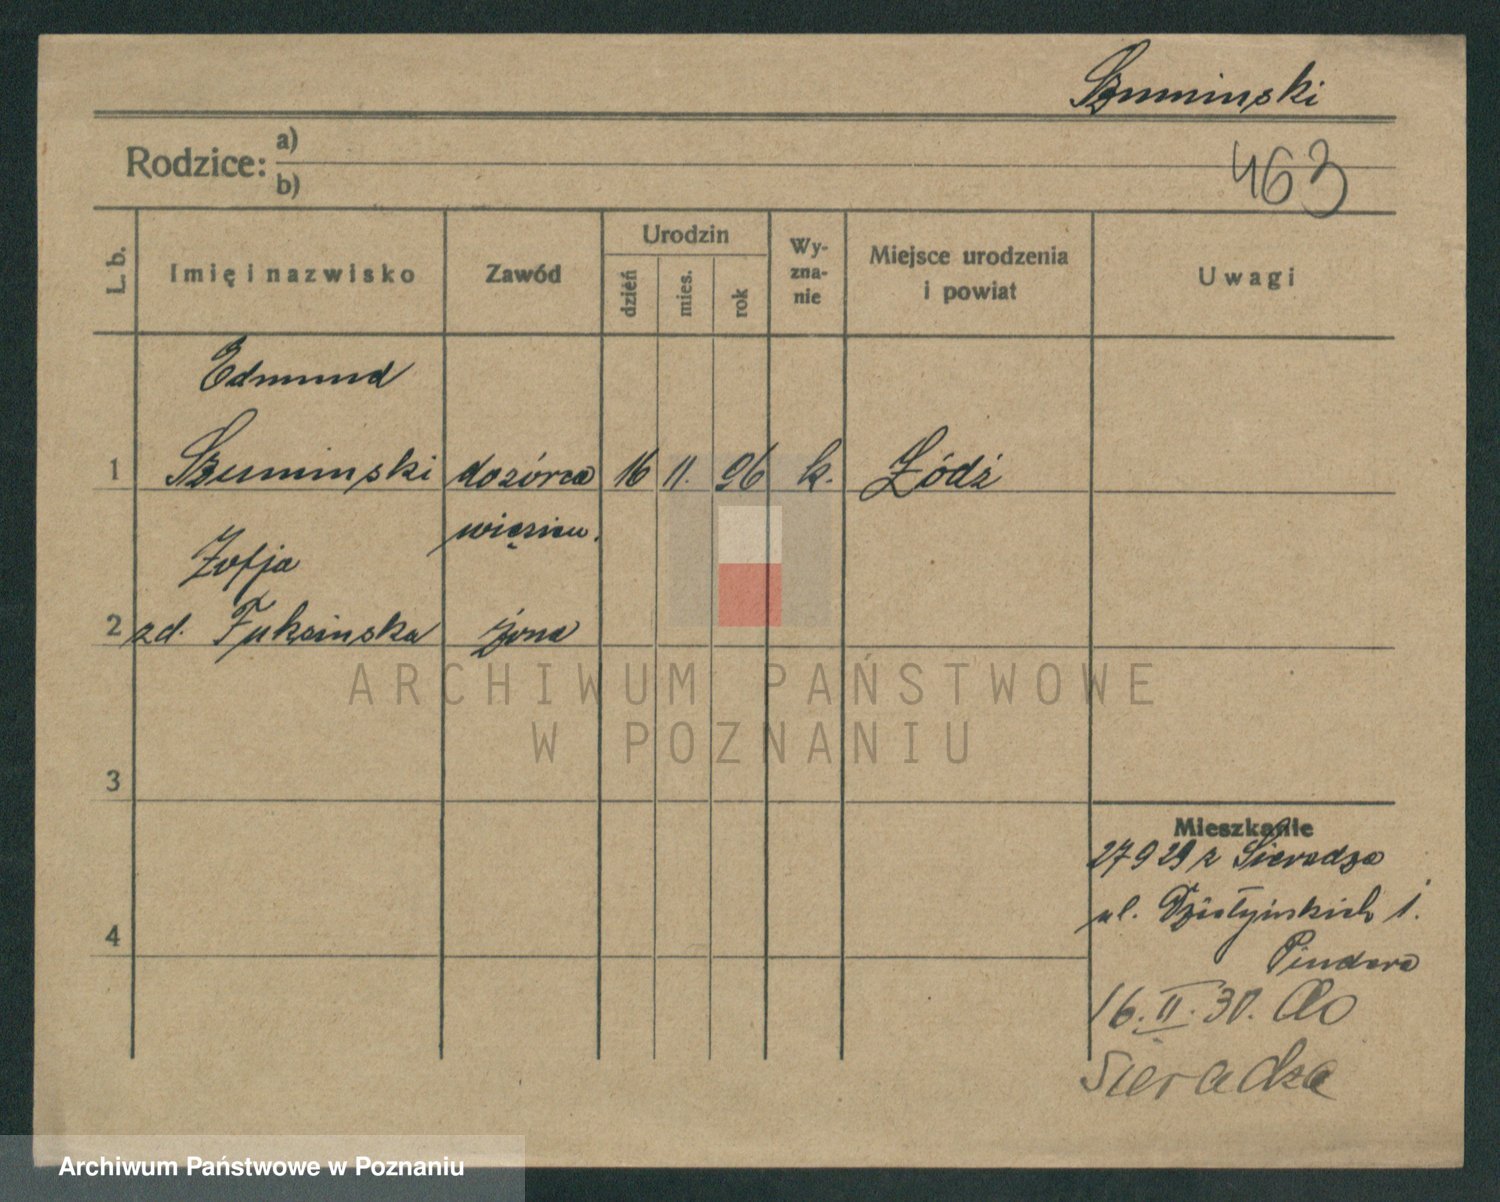 Szuminski
Rodzice: a)
b)
463
L. b.
Imię i nazwisko
Zawód
Urodzin
dzień
mies.
rok
Wy-
zna-
nie
Miejsce urodzenia
i powiat
Uwagi
Edmund
1 Szuminski dozórca 16 11. 96 k. Łódź
więzien.
Zofja
2 zd. Fuksinska żona
3
4
Mieszkanie
27 9 29 z Sieradza
ul. Działyńskich 1.
Pindara
16.II.30. do
Sieradza
ARCHIWUM PAŃSTWOWE
W POZNANIU
Archiwum Państwowe w Poznaniu